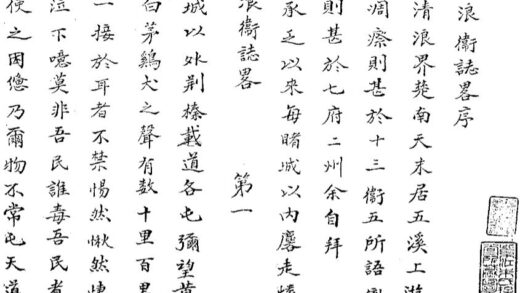 浪衞誌畧序
清浪界楚南天末居五溪上游
凋瘵則甚於十三衞五所語
則甚於七府二州余自拜
承乏以來每睹城以内麏走
浪衞誌畧 第一
城以外荆榛載道各屯彌望黄
白茅鷄犬之聲有数十里百里
一接於耳者不禁惕然愀然悽
泣下噫莫非吾民誰毒吾民者
使之困憊乃爾物不常屯天道